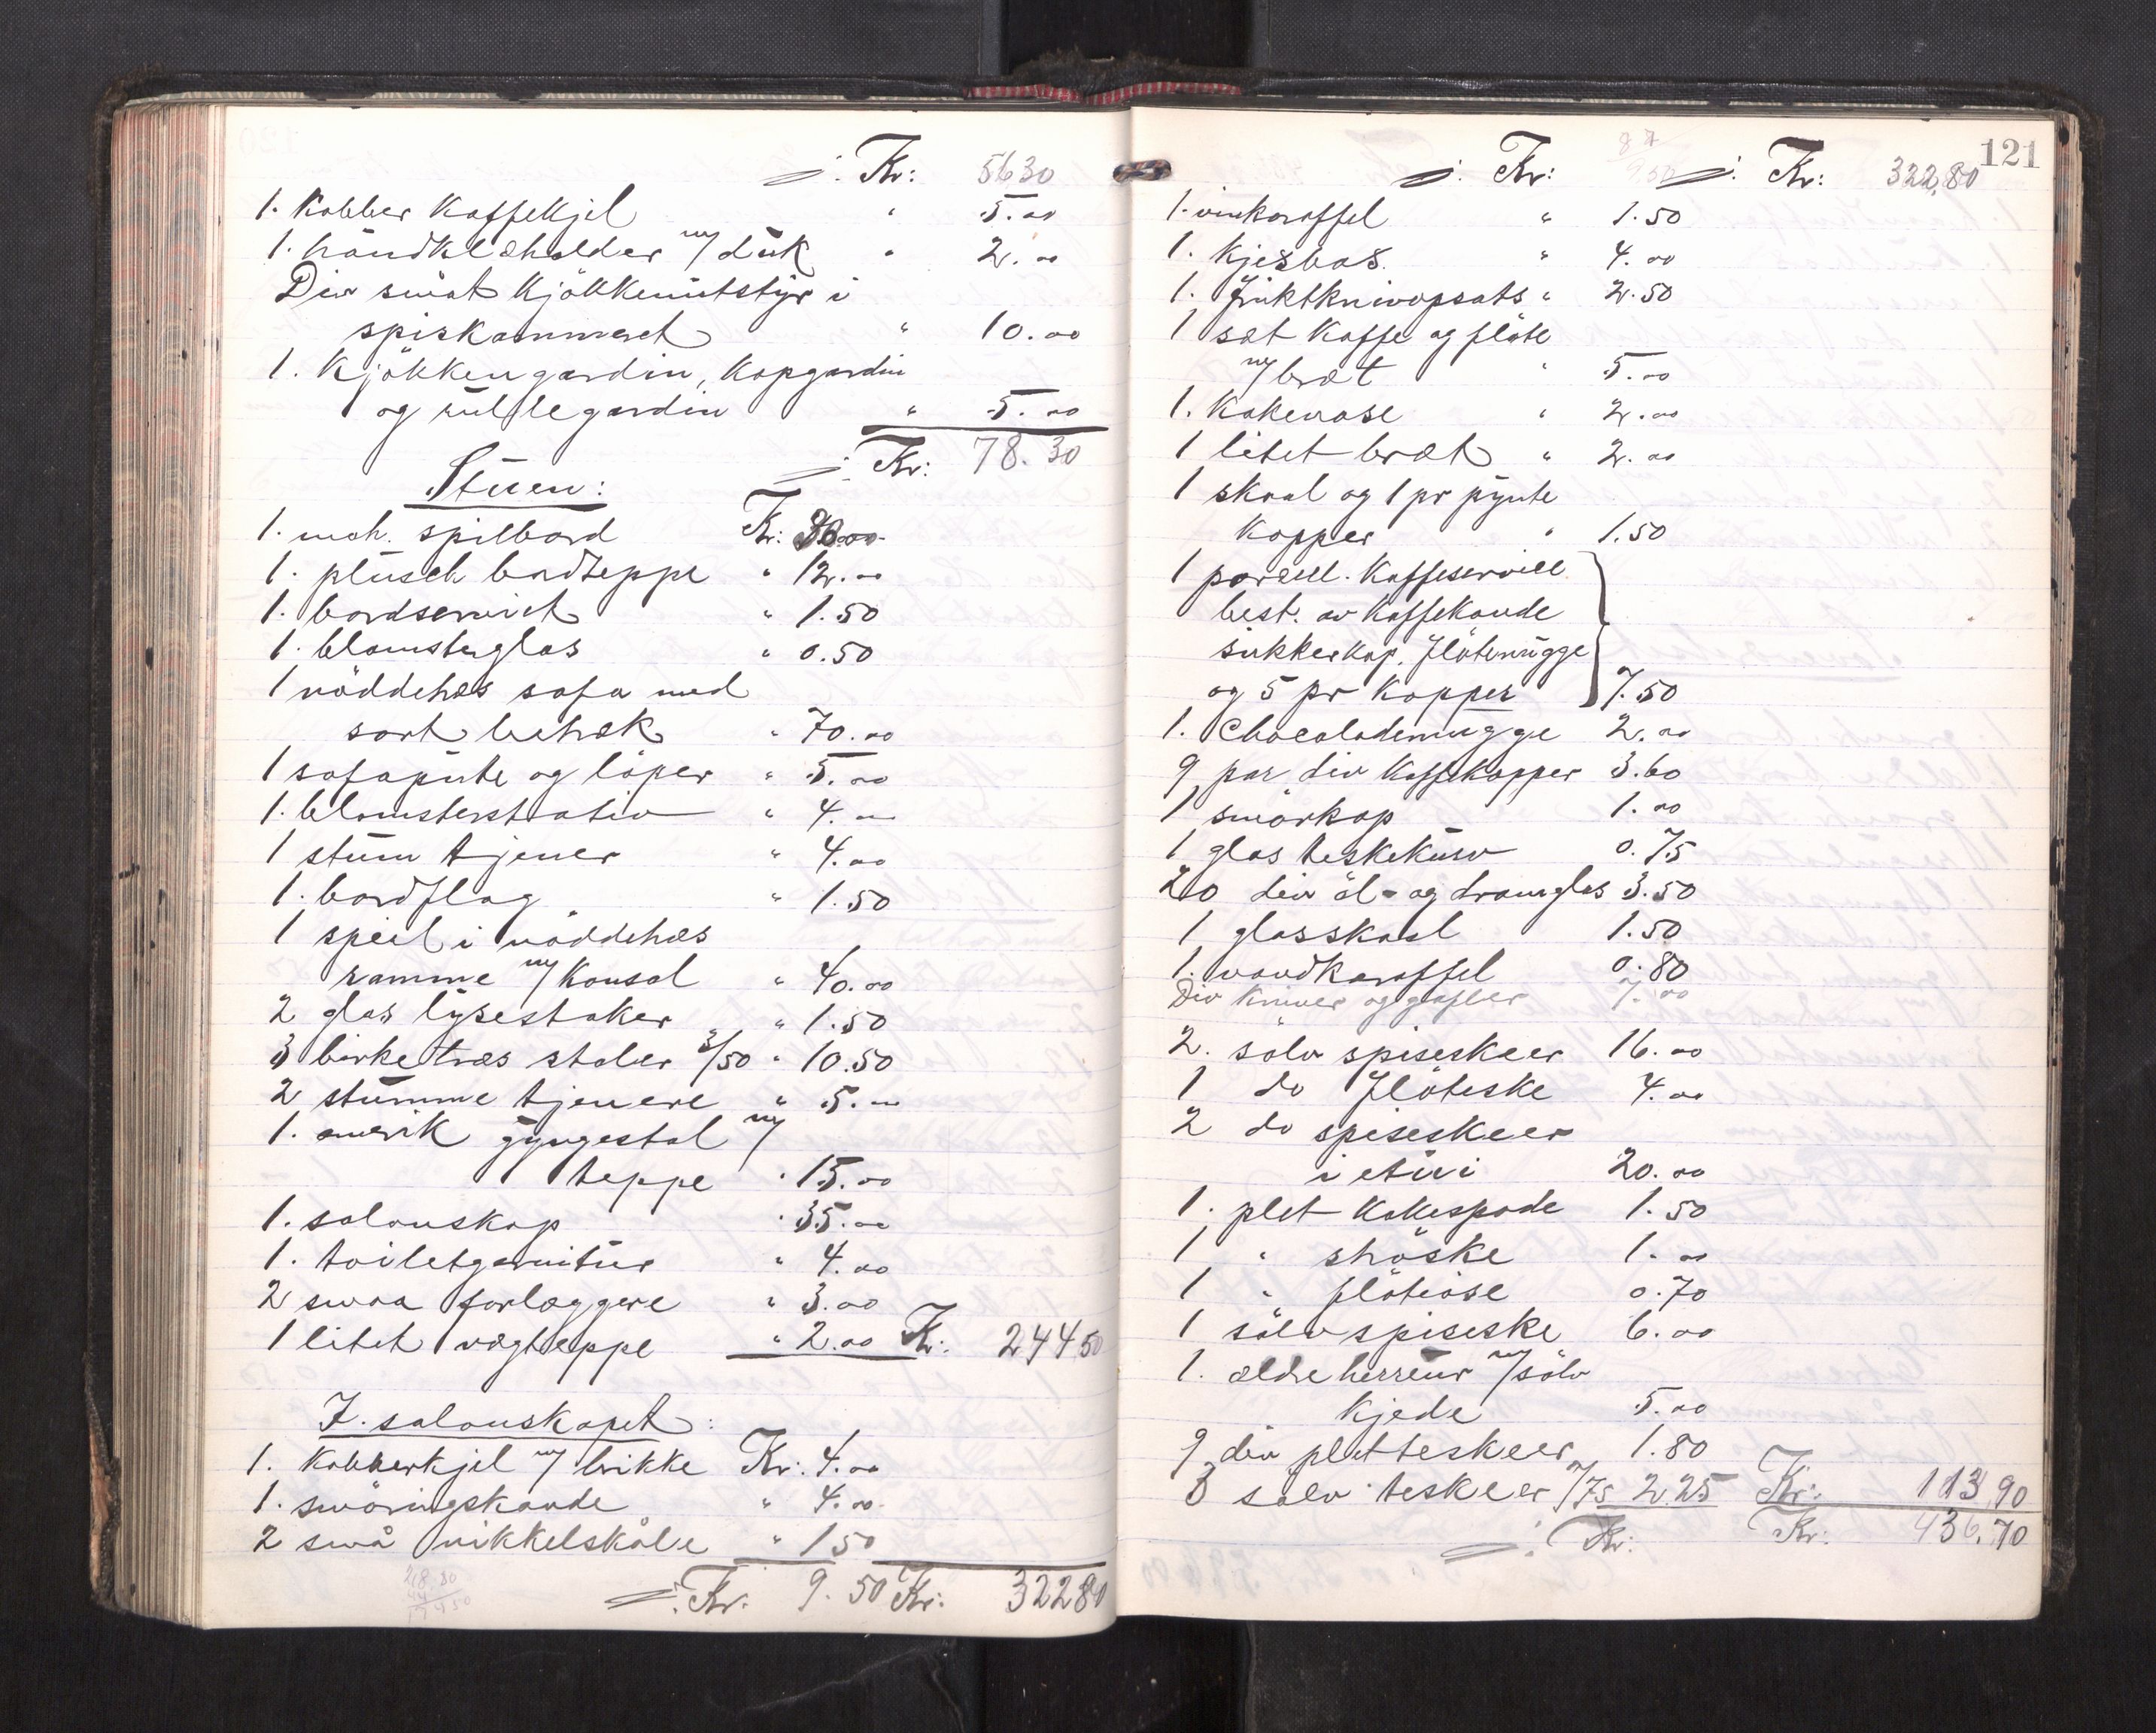 ./. Kr: 56 30
1. Kobber Kaffekjel " 5.00
1. håndklæholder m/ duk " 2.00
Div småt Kjökkenutstyr i
spiskammeret " 10.00
1. Kjökkengardin, Kapgardin
og rullegardin " 5.00
./. Kr: 78.30
Stuen:
1. mah. spilbord Kr: 30.00
1. plusch bordteppe " 12.00
1. bordserviet " 1.50
1. blomsterglas " 0.50
1 nöddetræs sofa med
sort betræk " 70.00
1 sofapute og löper " 5.00
1. blomsterstativ " 4.00
1 stum tjener " 4.00
1. bordflag " 1.50
1 speil i nöddetræs
ramme m/ Konsol " 40.00
2 glas lysestaker " 1.50
3 birketræs stoler 3/50 " 10.50
2 stumme tjenere " 5.00
1. amerik gyngestol m/
teppe " 15.00
1. salonskap " 35.00
1. toiletgarnitur " 4.00
2 smaa forlæggere " 3.00
1 litet vægteppe " 2.00 Kr: 244 50
I. salonskapet:
1. Kobberkjel m/ brikke Kr: 4.00
1. smöringskande " 4.00
2 små nikkelskåle " 1 50
./. Kr. 9.50 Kr: 322 80
121
./. Kr: 9 50 ./. Kr: 322,80
1. vinkaraffel " 1.50
1. Kjeksbas. " 4.00
1. Fruktknivopsats " 2.50
1 sæt Kaffe og flöte
m/ bræt " 5.00
1. Kakevase " 2.00
1 litet bræt " 2.00
1 skaal og 1 pr pynte
Kopper " 1.50
1 porsell. Kaffeservice
best. av Kaffekande
sukkerkop, Flötemugge
og 5 pr Kopper 7.50
1. Chocolademugge 2.00
9 par div Kaffekopper 3.60
1 smörkop 1.00
1 glas teskekurv 0.75
20 div öl- og dramglas 3.50
1 glasskaal 1.50
1. vandkaraffel 0.80
Div kniver og gafler 7.00
2. sölv spiseskeer 16.00
1 do Flöteske 4.00
2 do spiseskeer
i etui 20.00
1. plet Kakespade 1.50
1 " ströske 1.00
1 " flöteöse 0.70
1 sölv spiseske 6.00
1. ældre herreur m/ sölv
kjede 5.00
9 div plet teskeer 1.80
3 sölv teskeer /75 2.25 Kr: 113 90
./. Kr: Kr: 436.70